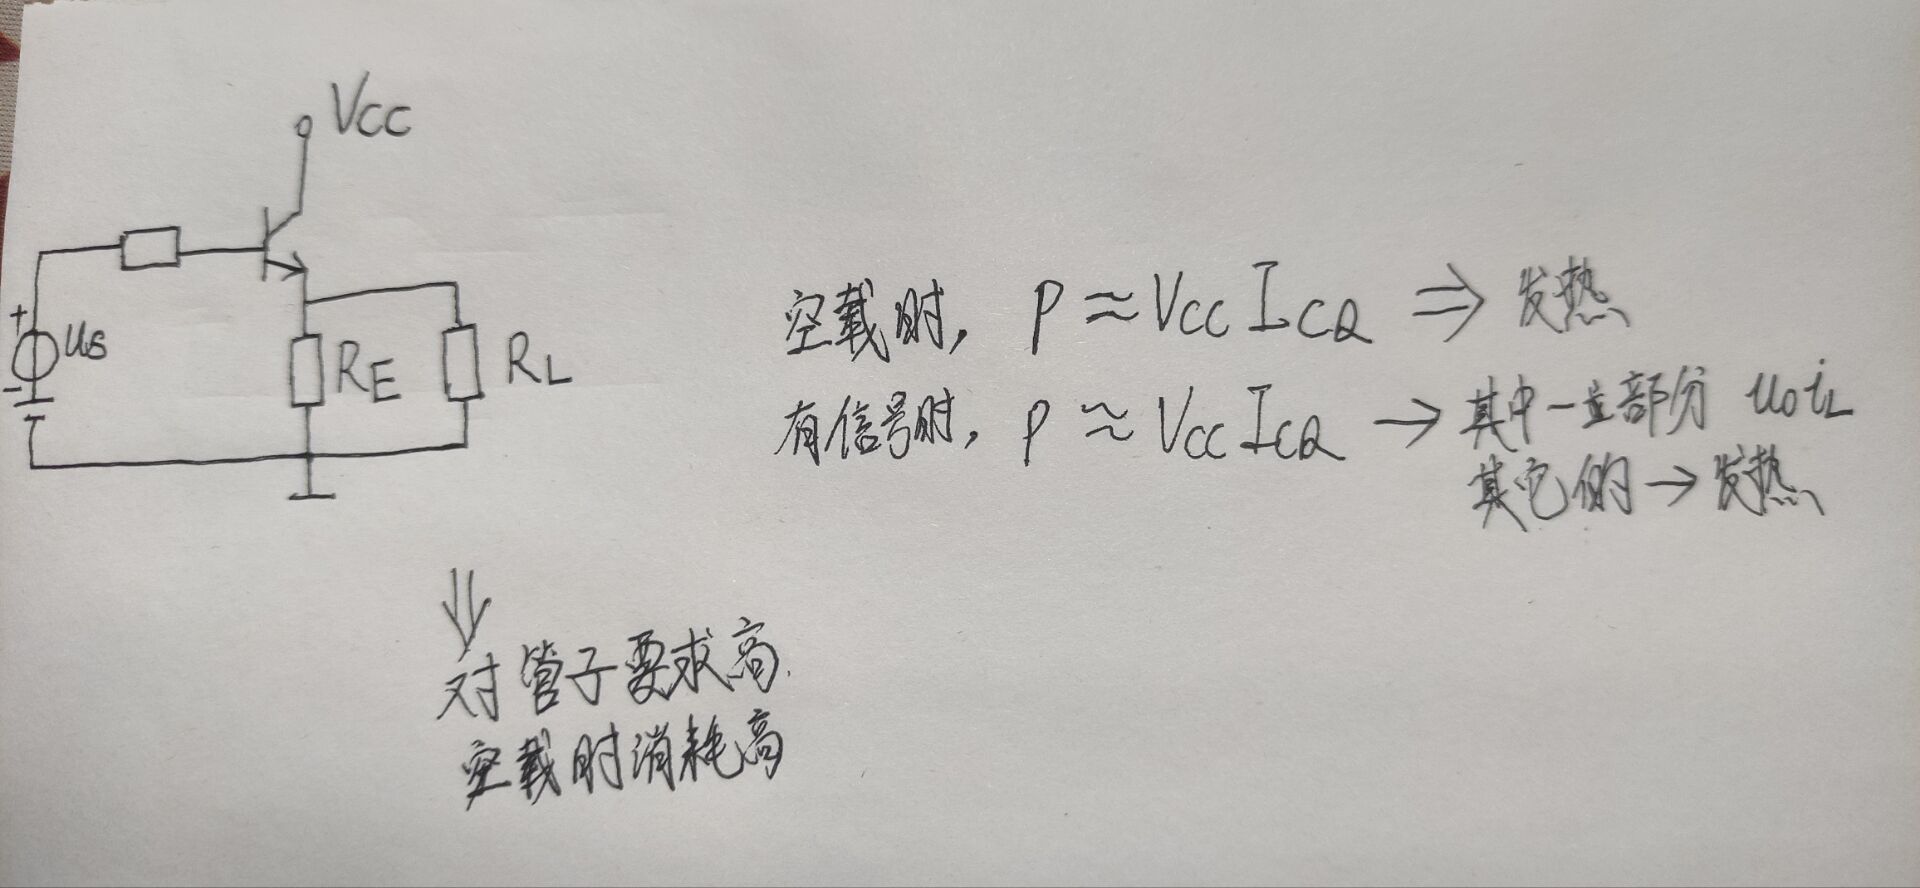 VCC
us
+
-
RE
RL
空载时, P≈VCC ICQ ⇒ 发热
有信号时, P≈VCC ICQ → 其中一部分 uoiL
其它的→发热
对管子要求高.
空载时消耗高